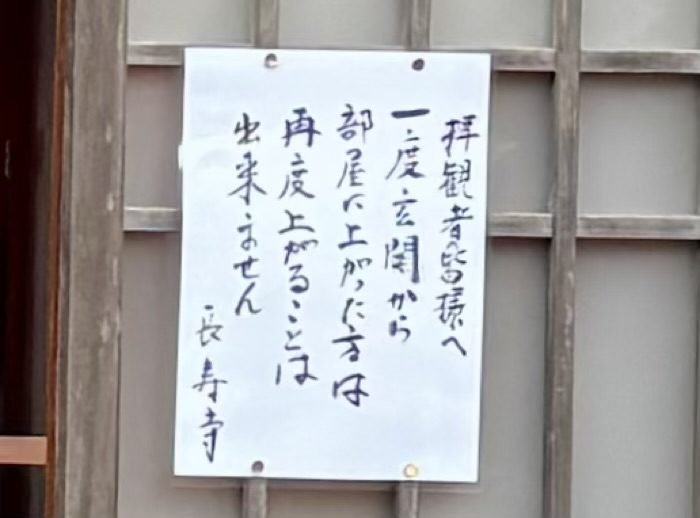 拝観者皆様へ
一度玄関から
部屋に上がった方は
再度上がることは
出来ません
長寿寺